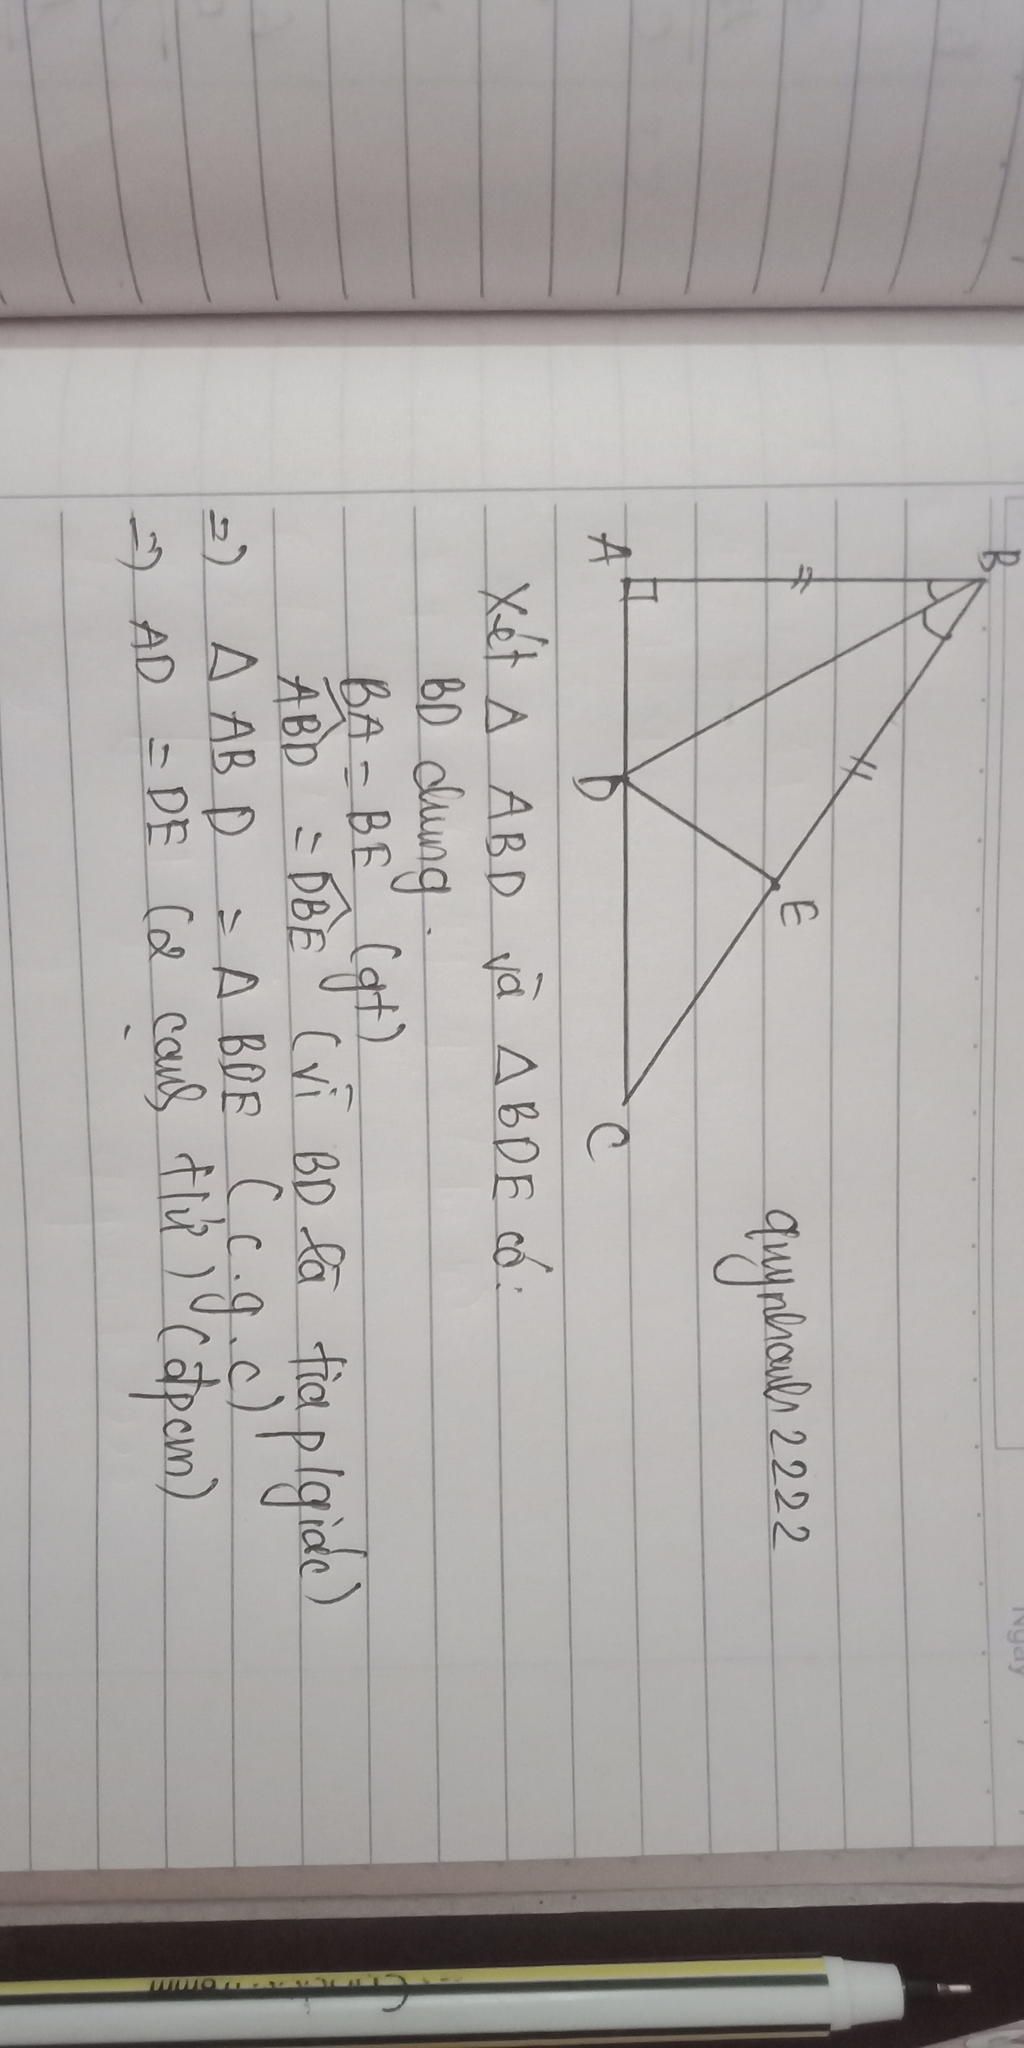 B
A
D
E
C
quynhanh2222
Xét Δ ABD và Δ BDE có:
BD chung.
BA = BE (gt)
ABD = DBE (vì BD là tia p/giác)
=) Δ ABD = Δ BDE (c.g.c)
=) AD = DE (2 cạnh tứ) (đpcm)
Ngày